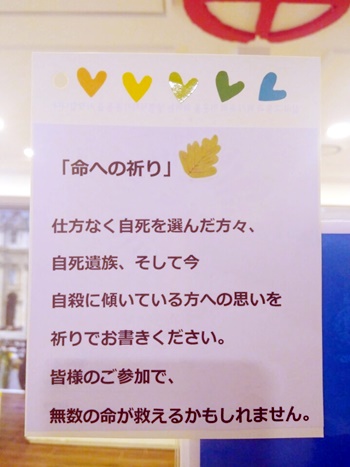 「命への祈り」
仕方なく自死を選んだ方々、
自死遺族、そして今
自殺に傾いている方への思いを
祈りでお書きください。
皆様のご参加で、
無数の命が救えるかもしれません。